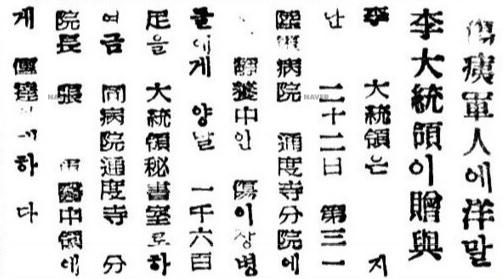 傷痍軍人에洋말
李大統領이贈與
李 大統領은 지
난 二十二日 第三一
陸軍病院 通度寺分院에
靜養中인 傷이장병
들에게 양말 一千六百
足을 大統領秘書室로하
여금 同病院通度寺 分
院長 張 醫中領에
게 傳達 하다
NAVER
NAVER